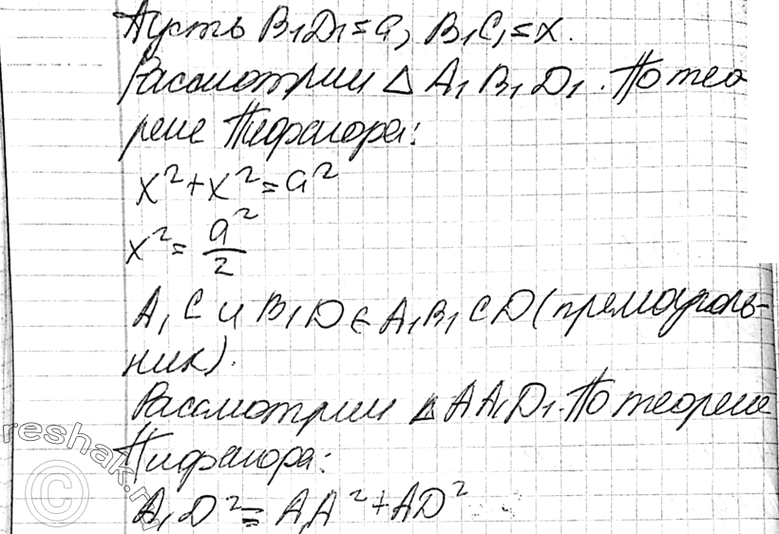 Пусть B₁D₁=a, B₁C₁=x.
Рассмотрим △ A₁B₁D₁. По тео
реме Пифагора:
x²+x²=a²
x²=a²/2
A₁C и B₁D ∈ A₁B₁CD (прямоуголь-
ник).
Рассмотрим △ AA₁D₁. По теореме
Пифагора:
A₁D²=A₁A²+AD²
reshak.ru
©